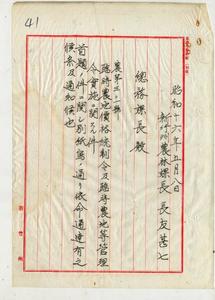 41
昭和十六年五月八日
新竹州農林課長 長友芸七
總務課長殿
農第三二一號
臨時農地價格統制令及臨時農地等管理
令實施ニ關スル件
首題ノ件ニ関シ別紙寫ノ通リ依命通達有之
候条及通知候也
新竹州